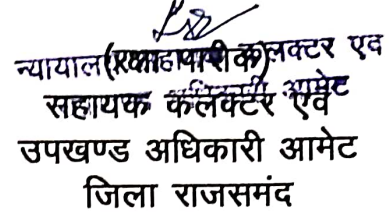 न्यायालय सहायक कलक्टर एव
सहायक कलक्टर एवं
उपखण्ड अधिकारी आमेट
जिला राजसमंद